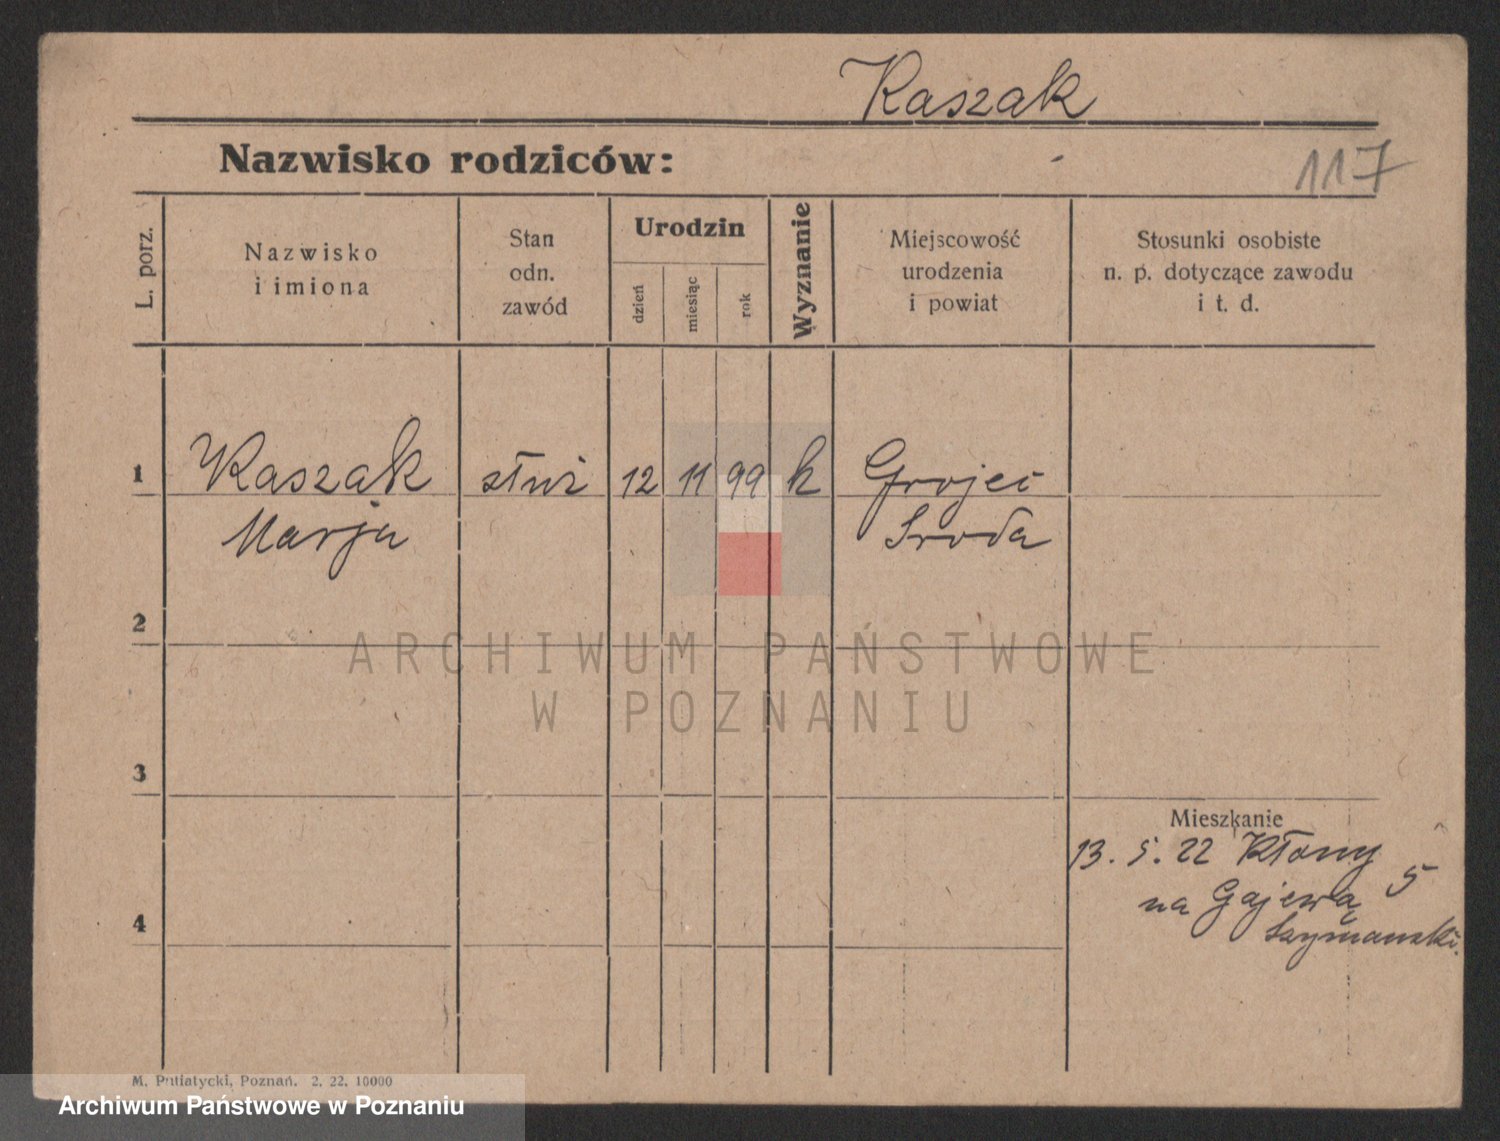 Kaszak
Nazwisko rodziców:
117
L. porz.
Nazwisko
i imiona
Stan
odn.
zawód
Urodzin
dzień
miesiąc
rok
Wyznanie
Miejscowość
urodzenia
i powiat
Stosunki osobiste
n. p. dotyczące zawodu
i t. d.
1
Kaszak
służ
12
11
99
k
Grojec
Marja
Sroda
2
ARCHIWUM PAŃSTWOWE
W POZNANIU
3
Mieszkanie
13. 5. 22 Kłony
na Gajewą 5
Szymanski.
4
M. Putiatycki, Poznań. 2. 22. 10000
Archiwum Państwowe w Poznaniu